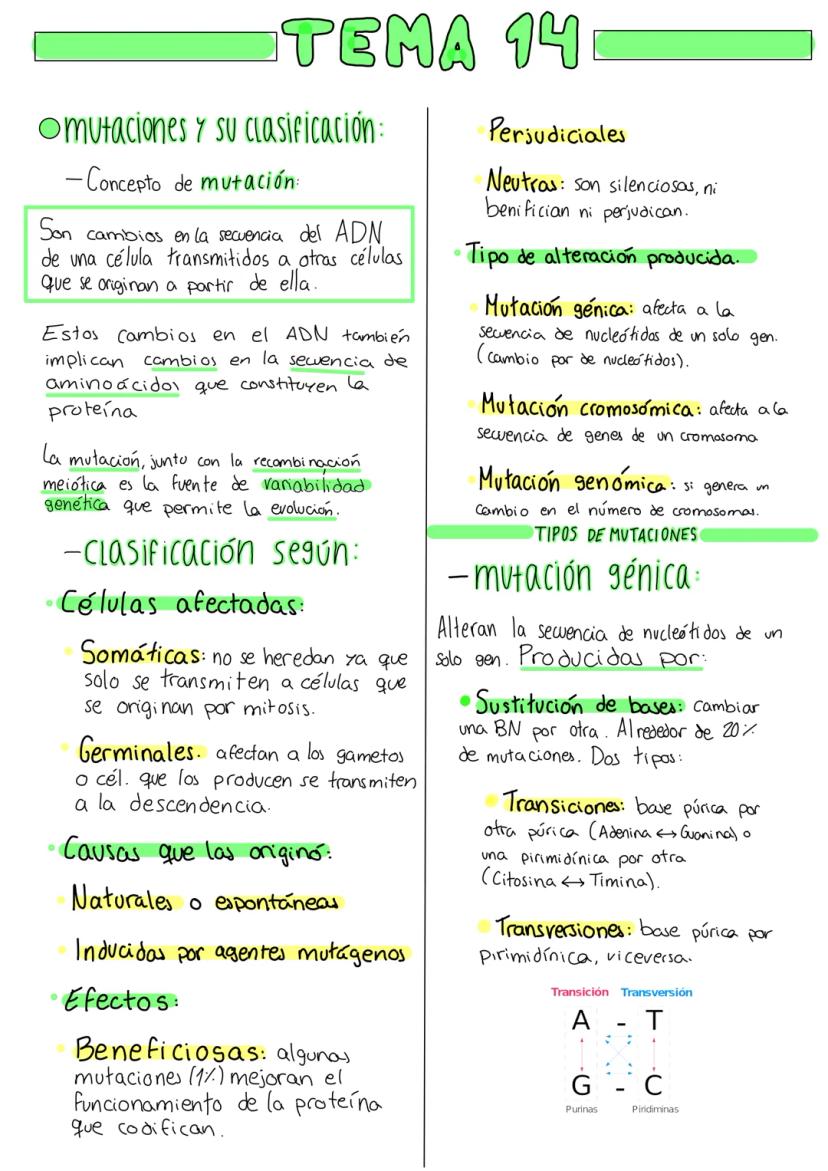 TEMA 14
mutaciones y su clasificación:
- Concepto de mutación:
Son cambios en la secuencia del ADN
de una célula transmitidos a otras células
que se originan a partir de ella.
Estos cambios en el ADN también
implican cambios en la secuencia de
aminoácidos que constituyen la
proteína
La mutación, junto con la recombinación
meiótica es la fuente de variabilidad
genética que permite la evolución.
- Clasificación según:
· Células afectadas:
· Somáticas: no se heredan ya que
solo se transmiten a células que
se originan por mitosis.
· Germinales. afectan a los gametos
o cél. que los producen se transmiten
a la descendencia.
· Causas que las originó:
· Naturales o espontáneas
· Inducidas por agentes mutágenos
· Efectos:
· Beneficiosas: algunas
mutaciones (1%) mejoran el
funcionamiento de la proteína
que codifican.
· Perjudiciales
· Neutras: son silenciosas, ni
benifician ni perjudican.
· Tipo de alteración producida.
· Mutación génica: afecta a la
secuencia de nucleótidos de un solo gen.
(cambio por de nucleótidos).
· Mutación cromosómica: afecta a la
secuencia de genes de un cromosoma
· Mutación genómica: si genera un
cambio en el número de cromosomas.
TIPOS DE MUTACIONES
- mutación génica:
Alteran la secuencia de nucleótidos de un
solo gen. Producidas por:
· Sustitución de bases: cambiar
una BN por otra. Alrededor de 20%
de mutaciones. Dos tipos:
· Transiciones: base púrica por
otra púrica (Adenina ↔ Guanina) o
una pirimidínica por otra
(Citosina ↔ Timina).
· Transversiones: base púrica por
pirimidínica, viceversa.
Transición Transversión
A - T
G - C
Purinas Piridiminas